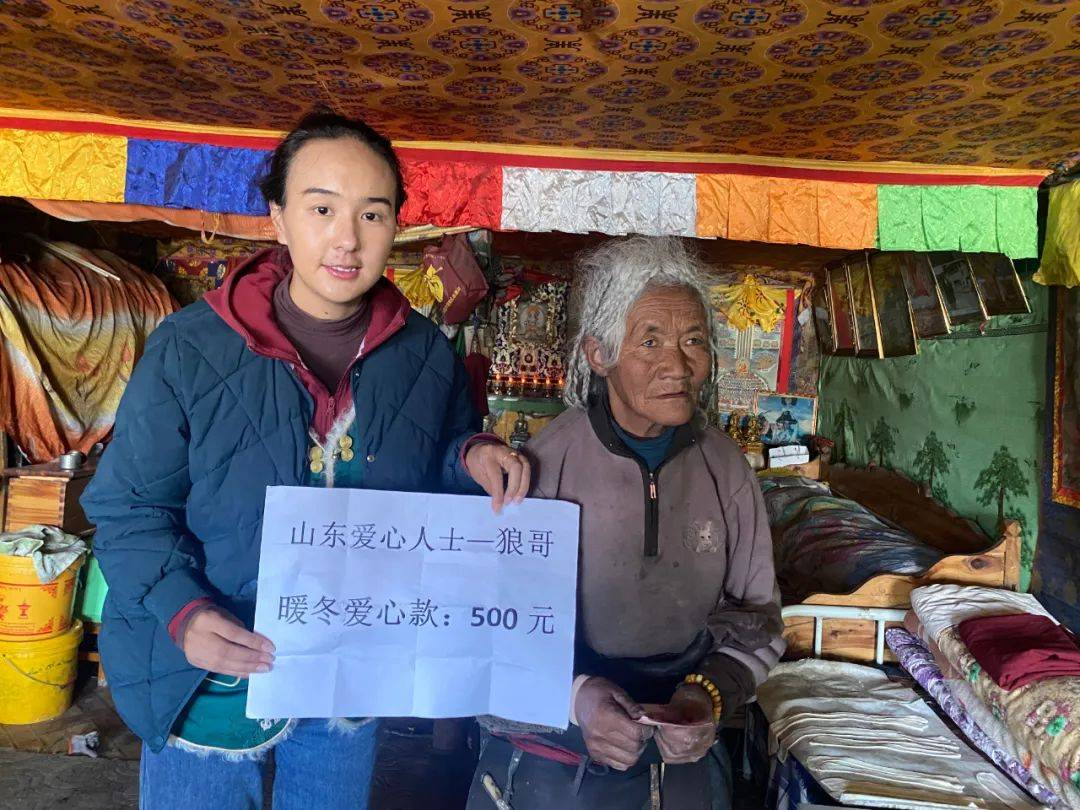 山东爱心人士—狼哥
暖冬爱心款：500 元